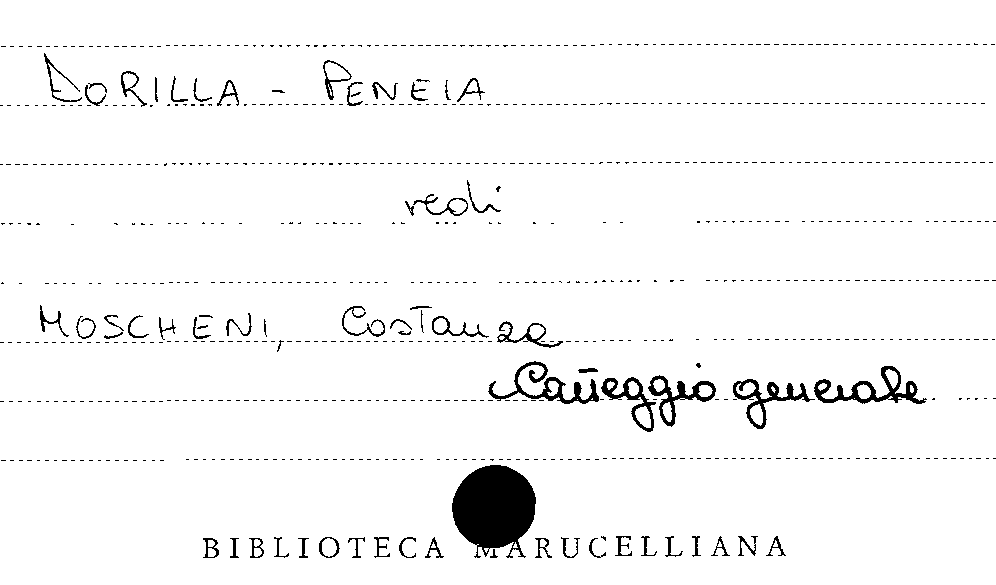 DORILLA - PENEIA
vedi
MOSCHENI, Costanza
Carteggio generale
BIBLIOTECA MARUCELLIANA